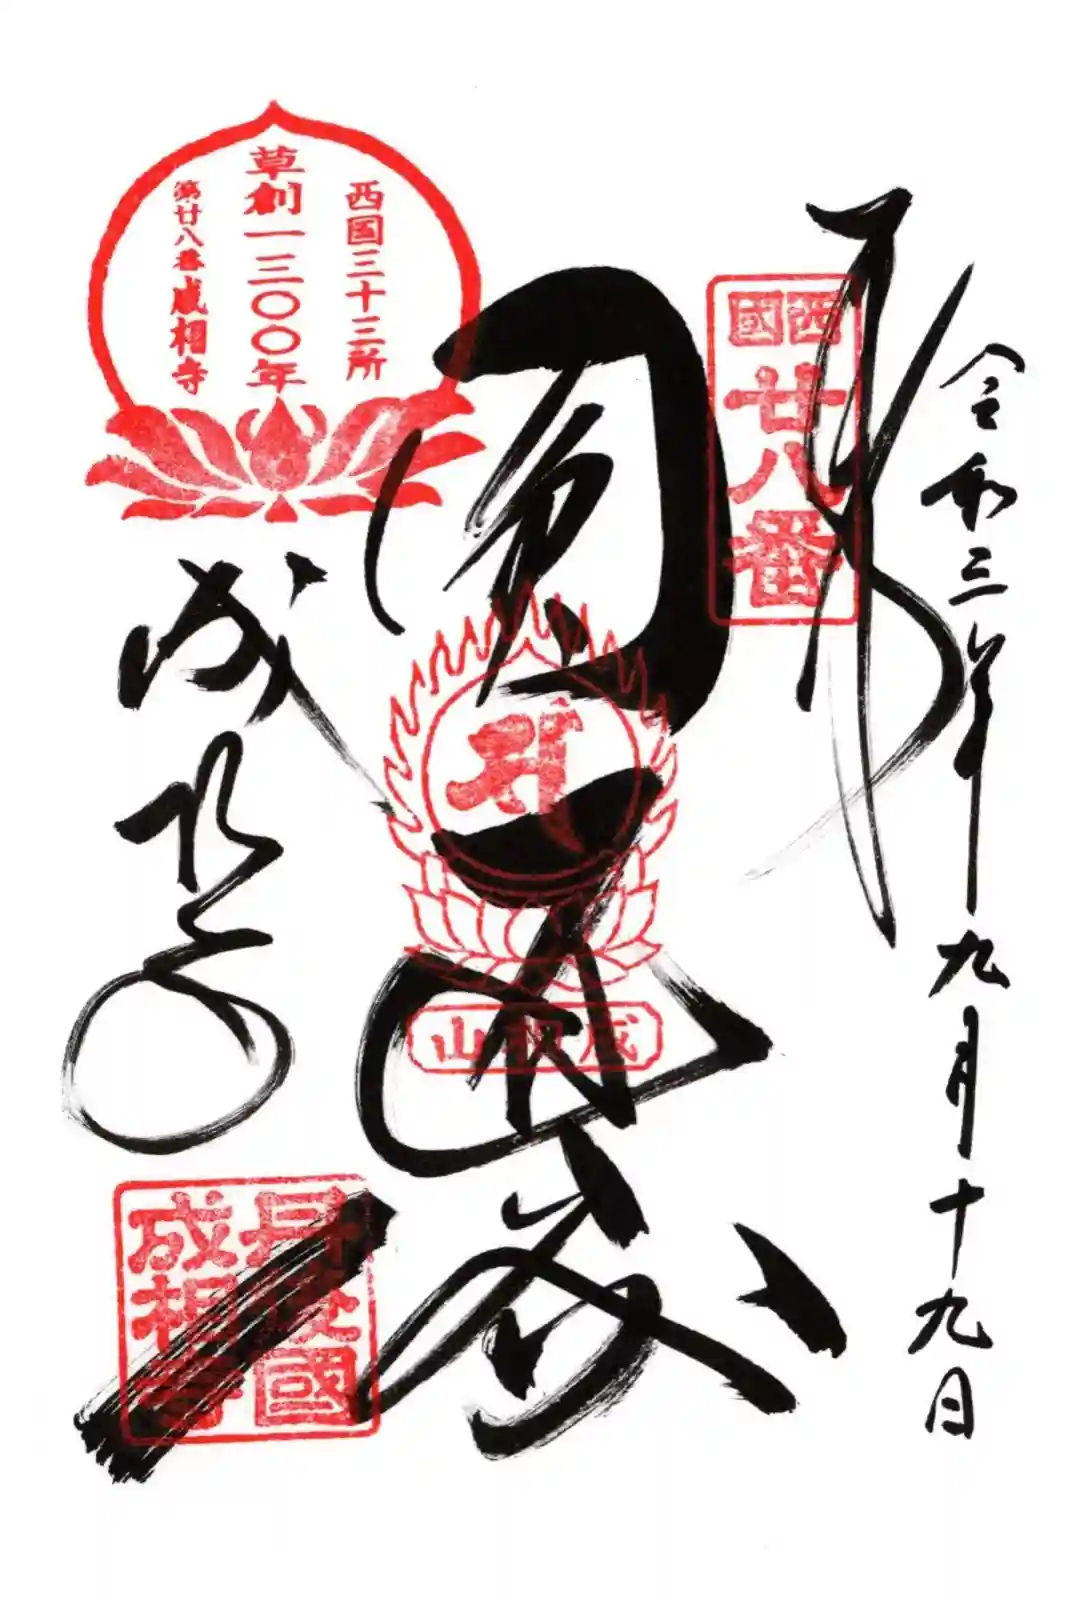 令和三年九月十九日
奉拝
西國
廿八番
圓通殿
成相山
西国三十三所
草創一三〇〇年
第廿八番成相寺
成相寺
丹後國
成相寺